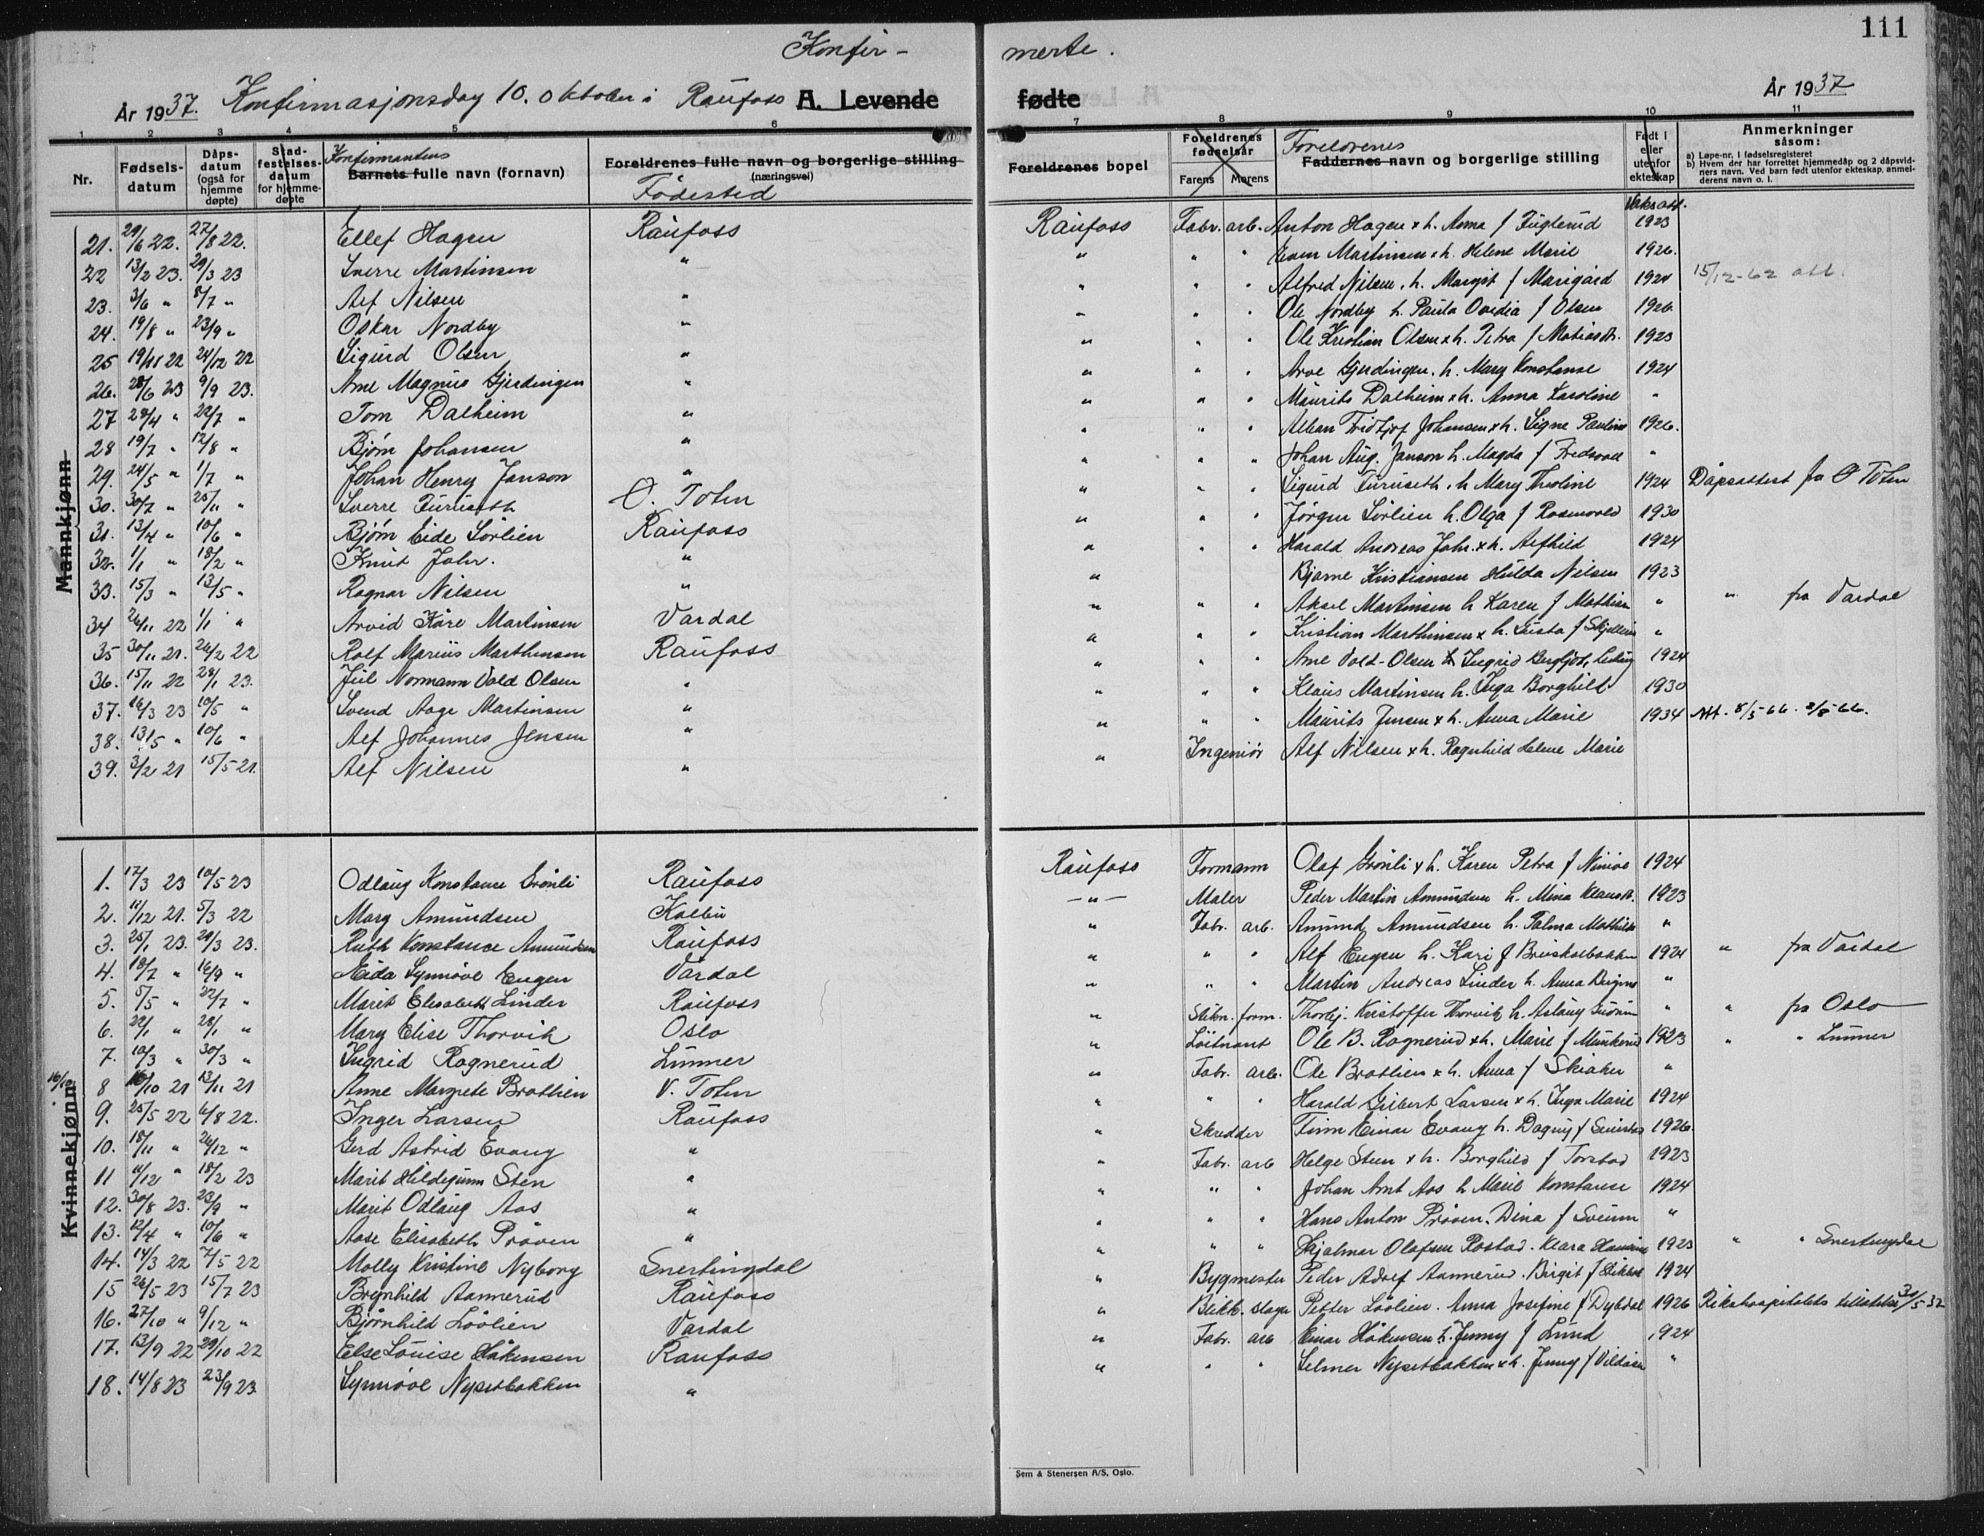 111
Konfir - merte.
År 1937. Konfirmasjonsdag 10. oktober i Raufoss A. Levende fødte År 1937
1 2 3 4 5 6 7 8 9 10 11
Nr. Fødsels-datum Dåps-datum (også for hjemme døpte) Stad-festelses-datum for hjemme-døpte Konfirmantens Barnets fulle navn (fornavn) Foreldrenes fulle navn og borgerlige stilling (næringsvei) Fødested
Foreldrenes bopel Foreldrenes fødselsår Farens Morens Foreldrenes Faddernes navn og borgerlige stilling Født i eller utenfor ekteskap Anmerkninger såsom:
a) Løpe-nr. i fødselsregisteret
b) Hvem der har forrettet hjemmedåp og 2 dåpsvidners navn. Ved barn født utenfor ekteskap, anmelderens navn o. l.
Mannkjønn
21. 29/6 22. 27/8 22. Ellef Hagen Raufoss Raufoss Fabr. arb. Anton Hagen x h. Anna f Fuglerud 1923
22 13/2 23. 29/3 23 Sverre Martinsen " " " " Even Martinsen x h. Helene Marie 1926.
23. 3/6 " 8/7 " Alf Nilsen " " " " Alfred Nilsen. h. Margit f Marigård 1924 15/12-62 att.
24. 19/8 " 23/9 " Oskar Nordby " " " " Ole Nordby h. Paula Ovidia f Olsen 1926
25 19/11 22 24/12 22 Sigurd Olsen " " " " Ole Kristian Olsen x h. Petra f Matiasdtr. 1923
26. 28/6 23 9/9 23. Arne Magnus Gjerdingen " " " " Arve Gjerdingen. h. Mary Konstanse 1924
27 28/4 " 22/7 " Tom Dalheim " " " " Maurits Dalheim x h. Anna Karoline "
28 19/7 " 12/8 " Bjørn Johansen " " " " Alban Fridtjof Johansen x h. Signe Pauline 1926.
29. 24/5 " 1/7 " Johan Henry Janson " " " " Johan Aug. Janson h. Magda f Fredsvall "
30. 30/7 " 25/11 " Sverre Furuseth Ø. Toten " " " Sigurd Furuseth. h Mary Theoline 1924 Dåpsattest fra Ø Toten
31. 13/4 " 10/6 " Bjørn Eide Sørlien Raufoss " " " Jørgen Sørlien h. Olga f Rosenvold 1930
32. 1/1 " 18/2 " Knut Jahr. " " " " Harald Andreas Jahr. x h. Alfhild 1924
33. 15/3 " 13/5 " Ragnar Nilsen " " Bjarne Kristiansen Hulda Nilsen 1923
34 26/11 22 1/1 " Arvid Kåre Martinsen Vardal " " " Aksel Martinsen h Karen f Mathisen " " fra Vardal
35 30/11 21. 26/2 22 Rolf Marius Marthinsen Raufoss " " " Kristian Marthinsen x h. Gusta f Skjellerud "
36. 15/11 22 28/1 23. Jul Normann Vold Olsen " " " " Arne Vold-Olsen h Ingrid Bergljot, 1924
37. 16/3 23 10/5 " Svend Aage Martinsen " " " " Klaus Martinsen h. Inga Borghild 1930
38. 13/5 " 10/6 " Alf Johannes Jensen " " " " Maurits Jensen x h. Anna Marie 1934 Att. 8/5-66. 2/8-66.
39. 3/2 21 15/5 21. Alf Nilsen " " Ingeniør Alf Nilsen x h. Ragnhild Helene Marie
Kvinnekjønn
1. 17/3 23 10/5 23 Odlaug Konstance Grønli Raufoss Raufoss Formann Olaf Grønli x h. Karen Petra f Nimoe 1924
2. 11/12 21. 5/3 22 Mary Amundsen Kolbu - " - Maler Peder Martin Amundsen h. Mina Klausdtr. 1923
3. 25/1 23. 29/3 23. Ruth Konstance Amundsen Raufoss " Fabr. arb. Amund Amundsen h. Palma Mathilde "
4. 18/7 " 16/9 " Eida Synnøve Engen Vardal " " " Alf Engen h. Kari f Bruskelbakken 1924 " fra Vardal
5. 5/5 " 22/7 " Marit Elisabeth Linder Raufoss " " " Martin Andreas Linder h. Anna Bergine "
6. 22/1 " 28/1 " Mary Elise Thorvik Oslo " form. Thorbj. Kristoffer Thorvik h. Aslaug " " fra Oslo
7. 10/3 " 30/3 " Ingrid Rognerud Lunner " Løitnant Ole B. Rognerud x h. Marie f Munkerud 1923 " " Lunner
16/10 8 16/10 21 13/11 21 Anne Margrete Bratlien V. Toten " Fabr. arb. Ole Bratlien x h. Anna f Skiaker "
9. 25/5 22 6/8 22. Inger Larsen Raufoss " " " Harald Gilbert Larsen x h. Inga Marie 1924
10. 18/11 " 26/12 " Gerd Astrid Evang " " Skredder Finn Einar Evang h. Dagny f 1926
11 11/12 " 18/2 23 Marit Hildegunn Sten " " Fabr. arb Helge Steen x h. Borghild f Torstad 1923
12. 30/8 23. 23/9 " Marit Odlaug Aas " " " " Johan Arnt Aas h Marie Konstanse 1924
13. 12/4 " 10/6 " Aase Elisabeth Prøven " " " " Hans Anton Prøven. Dina f Sveum "
14. 14/3 22 7/5 22 Molly Kristine Nyborg Snertingdal " " " Hjalmar Olafsen Rostad. Klara 1923 " " Snertingdal
15 26/5 23 15/7 23 Brynhild Aannerud Raufoss " Bygmester Peder Adolf Aannerud. Birgit f 1924
16. 27/10 " 9/12 " Bjørnhild Løvlien Vardal " Blikk. slager Petter Løvlien. Anna Josefine f Dybdal 1926 Rikshospitalets 30/5-32
17. 13/9 22 29/10 22 Else Louise Håkensen Raufoss " Fabr. arb Einar Håkensen h. Jenny f Lund 1924
18. 14/8 23 23/9 23 Synnøve Nysetbakken " " " " Selmer Nysetbakken x h. Jenny f Vildåsen "
Sem & Stenersen A/S, Oslo.